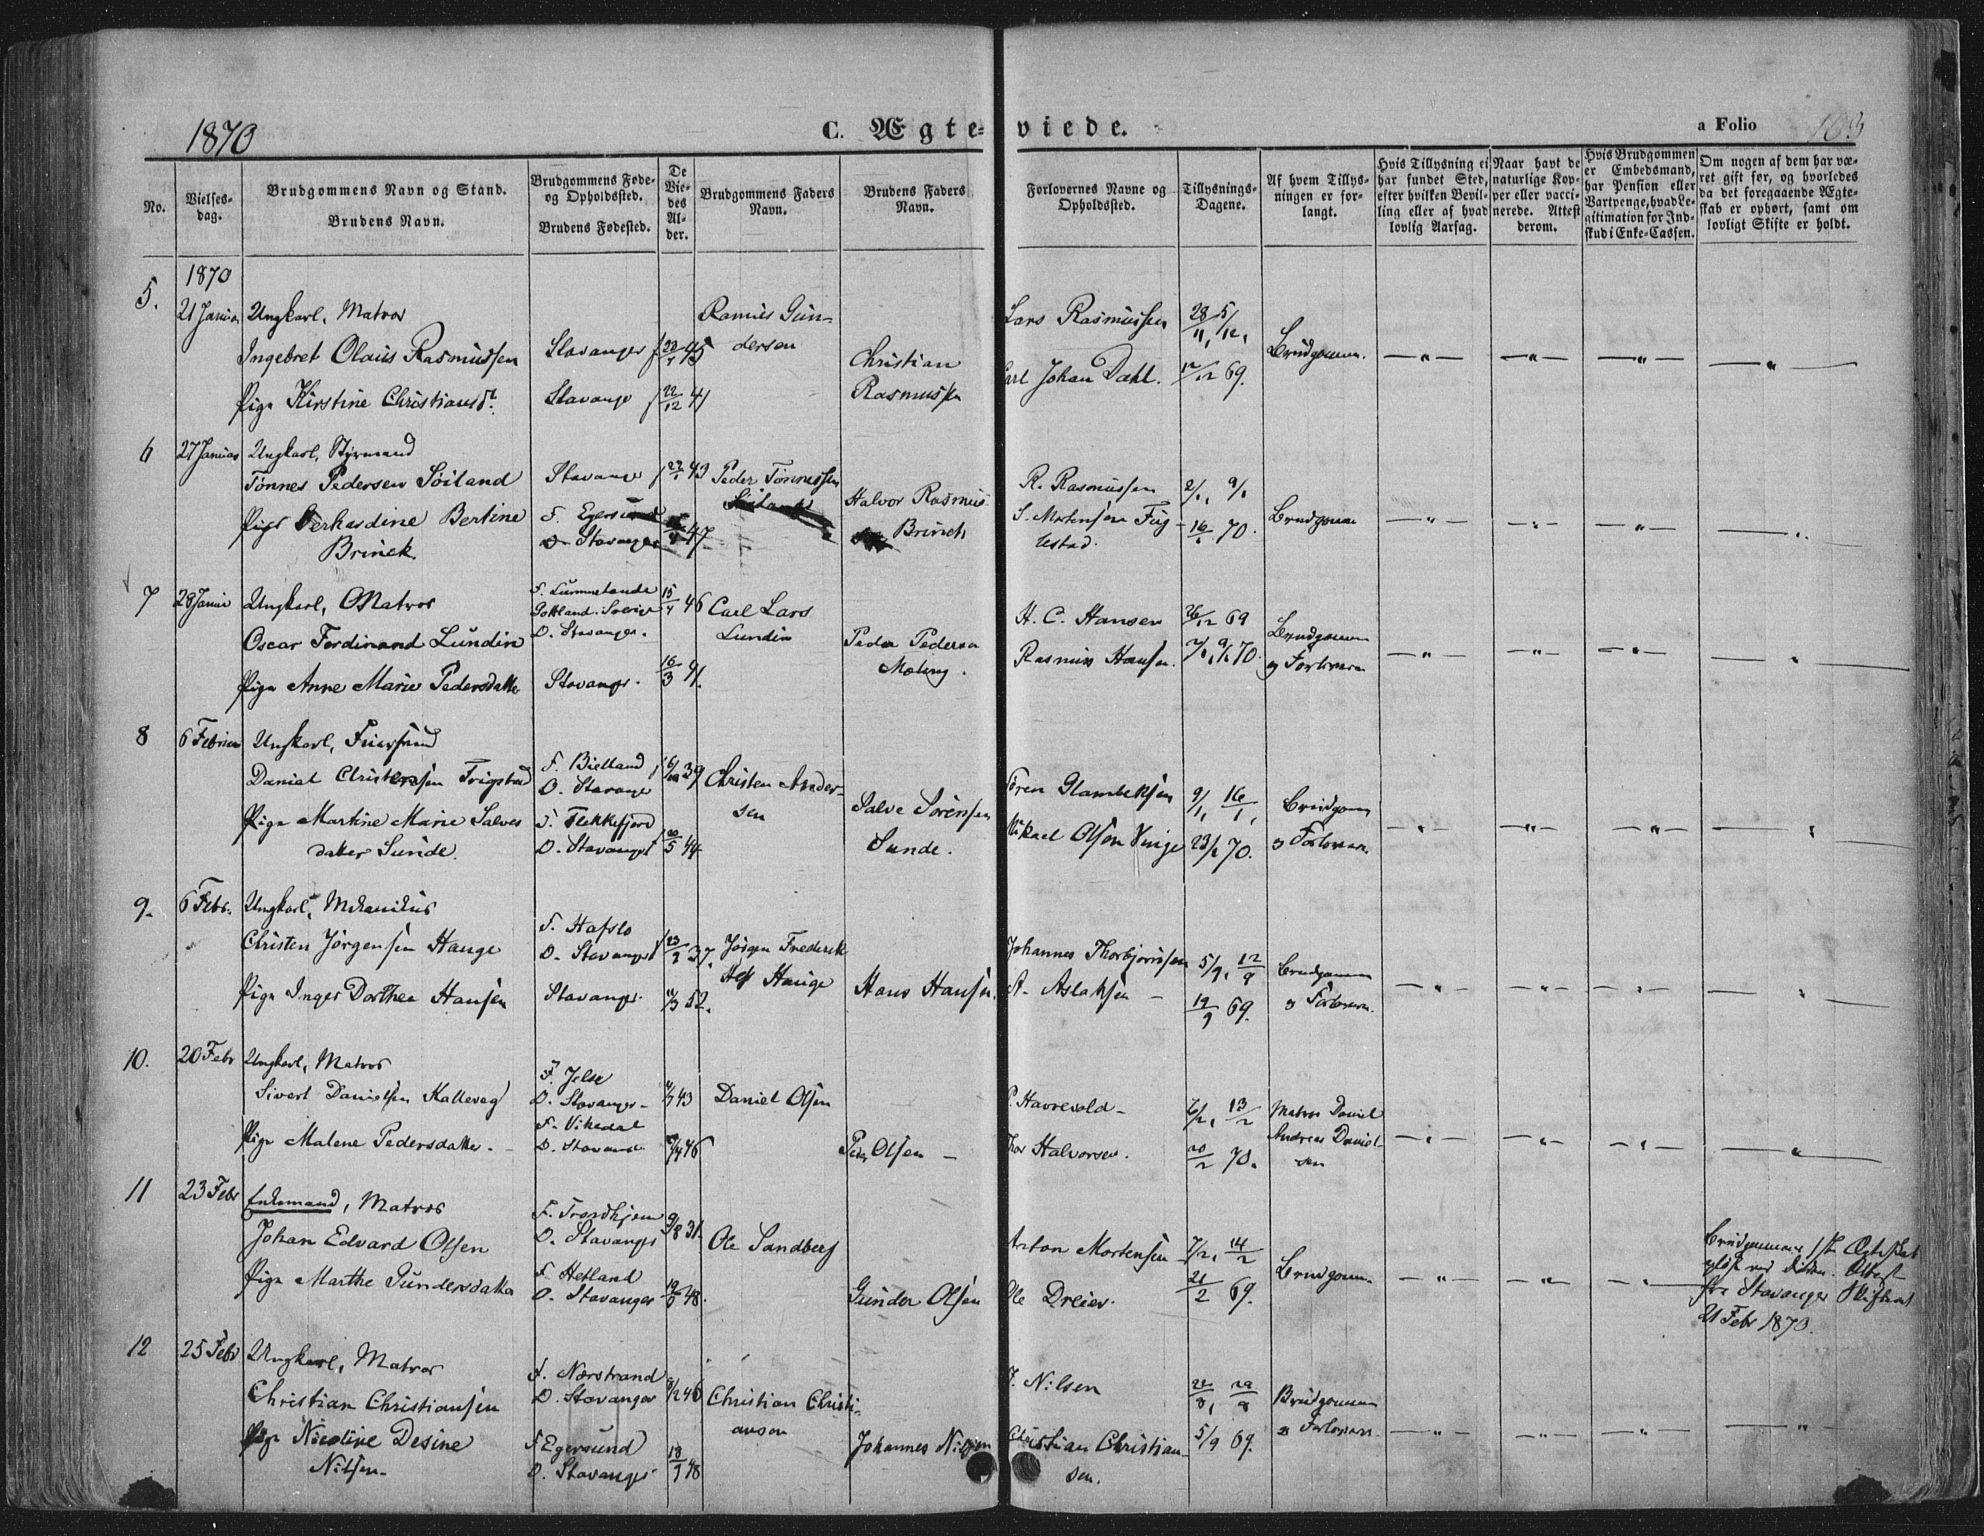 1870
C. Ægte-viede.
a Folio 103
No.
Vielses-
dag.
Brudgommens Navn og Stand.
Brudens Navn.
Brudgommens Føde-
og Opholdssted.
Brudens Fødested.
De
Vie-
des
Al-
der.
Brudgommens Faders
Navn.
Brudens Faders
Navn.
Forlovernes Navne og
Opholdssted.
Tillysnings-
Dagene.
Af hvem Tillys-
ningen er for-
langt.
Hvis Tillysning ei
har fundet Sted,
efter hvilken Bevil-
ling eller af hvad
lovlig Aarsag.
Naar havt de
naturlige Kop-
per eller vacci-
nerede. Attest
derom.
Hvis Brudgommen
er Embedsmand,
har Pension eller
Vartpenge, hvad Le-
gitimation for Ind-
skud i Enke-Cassen.
Om nogen af dem har væ-
ret gift før, og hvorledes
da det foregaaende Ægte-
skab er ophørt, samt om
lovligt Skifte er holdt.
1870
5. 21 Januar Ungkarl, Matros
Ingebret Olaus Rasmussen
Pige Kirstine Christiansd.
Stavanger 45
Stavanger 22/12 41
Rasmus Gun-
dersen
Christian
Rasmussen
Lars Rasmussen
Carl Johan Dahl.
28/11, 5/12,
12/12 69.
Brudgommen.
6 27 Januar Ungkarl, Styrmand
Tønnes Pedersen Söiland
Pige Gerhardine Bertine
Brinck
Stavanger 43
F. Egersund
O. Stavanger 47
Peder Tønnessen
Halvor Rasmus-
Brinch
R. Rasmussen
S. Mortensen Fug-
lestad.
2/1, 9/1
16/1 70.
Brudgommen
7 28 Januar Ungkarl, Matros
Oscar Ferdinand Lundin
Pige Anne Marie Pedersdatter
F. Lummelunda
Gottland. Sverige
O. Stavanger.
46
Stavanger. 16/3 41.
Carl Lars
Lundin
Peder Pedersen
H. C. Hansen
Rasmus Hansen.
26/12 69
2/1, 9/1 70.
Brudgommen
og Forloveren
8 6 Februar Ungkarl,
Daniel Christensen Trigstad
Pige Martine Marie Salves
datter Sunde.
F. Bielland
O. Stavanger 39
F. Flekkefjord
O. Stavanger 44
Christen Ander-
sen
Salve Sørensen
Sunde.
Mikael Olsen Vinje
9/1, 16/1,
23/1 70.
Brudgommen
og Forloveren.
9. 6 Febr. Ungkarl, Mekanikus
Christen Jørgensen Hauge
Pige Inger Dorthea Hansen
F. Hafslo
O. Stavanger 37.
Stavanger. 52.
Jørgen Frederik
Hauge
Hans Hansen.
Johannes Thorbjørnsen
A. Aslaksen
5/9, 12/9
19/9 69.
Brudgommen
og Forloveren.
10. 20 Febr Ungkarl, Matros
Sivert Danielsen Kallevag
Pige Malene Pedersdatter.
F. Jelse
O. Stavanger 43
F. Vikedal
O. Stavanger 46
Daniel Olsen
Peder Olsen
P. Havrevold
Thor Halvorsen.
6/2, 13/2
20/2 70.
Matros Daniel
Andreas Daniel-
sen
11 23 Febr Enkemand, Matros
Johan Edvard Olsen
Pige Marthe Gundersdatter
F. Trondhjem
O. Stavanger 9/8 31.
F. Hetland
O. Stavanger 48.
Ole Sandberg
Gunder Olsen
Anton Mortensen
Ole Dreier.
7/2, 14/2
21/2 69.
Brudgommen
Brudgommens 1ste Ægteskab
opløst ved Døden. Attest
fra Stavanger Skifteret
21 Febr 1870.
12 25 Febr Ungkarl, Matros
Christian Christiansen
Pige Nicoline Desine
Nilsen
F. Nærstrand
O. Stavanger 46
F. Egersund
O. Stavanger 48
Christian Christi-
ansen
Johannes Nilsen
J. Nilsen
Christian Christian-
sen.
22/8, 29/8
5/9 69.
Brudgommen
og Forloveren